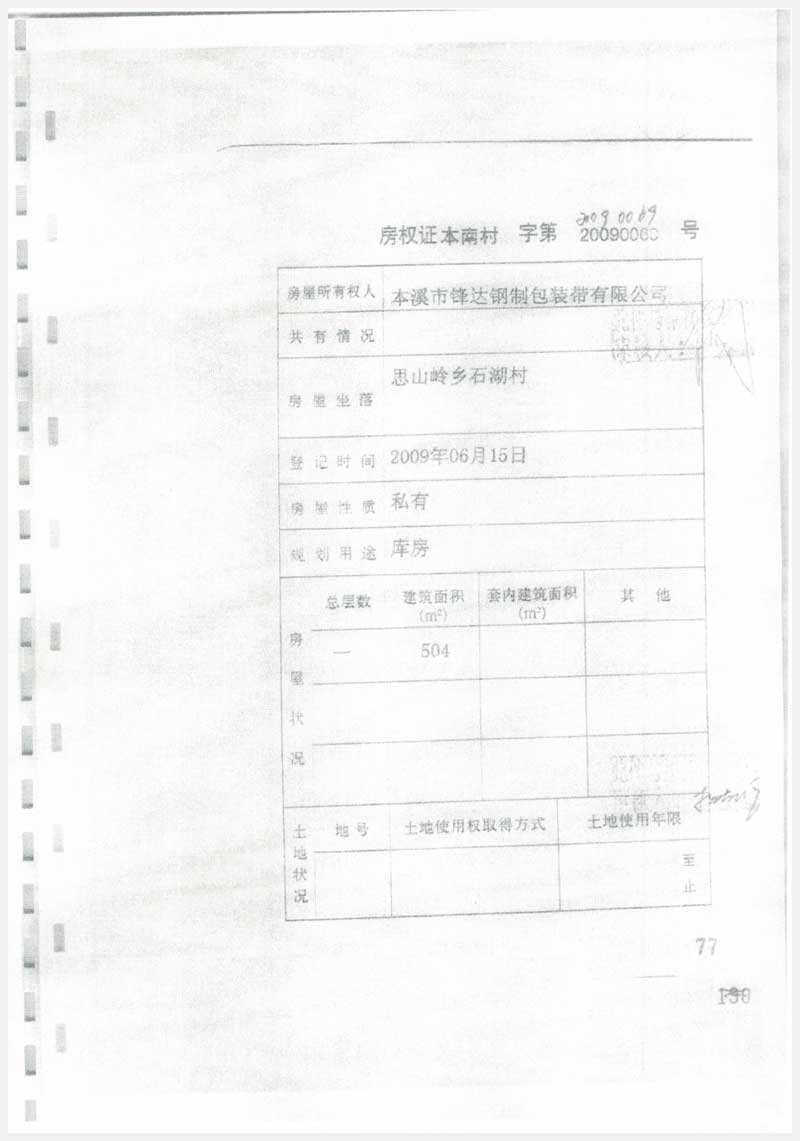 20090069
房权证本南村 字第 2009006 号
房屋所有权人 本溪市锋达钢制包装带有限公司
共有情况
房屋坐落 思山岭乡石湖村
登记时间 2009年06月15日
房屋性质 私有
规划用途 库房
房屋状况
总层数 建筑面积(m²) 套内建筑面积(m²) 其他
一 504
土地状况
地号 土地使用权取得方式 土地使用年限
至
止
77